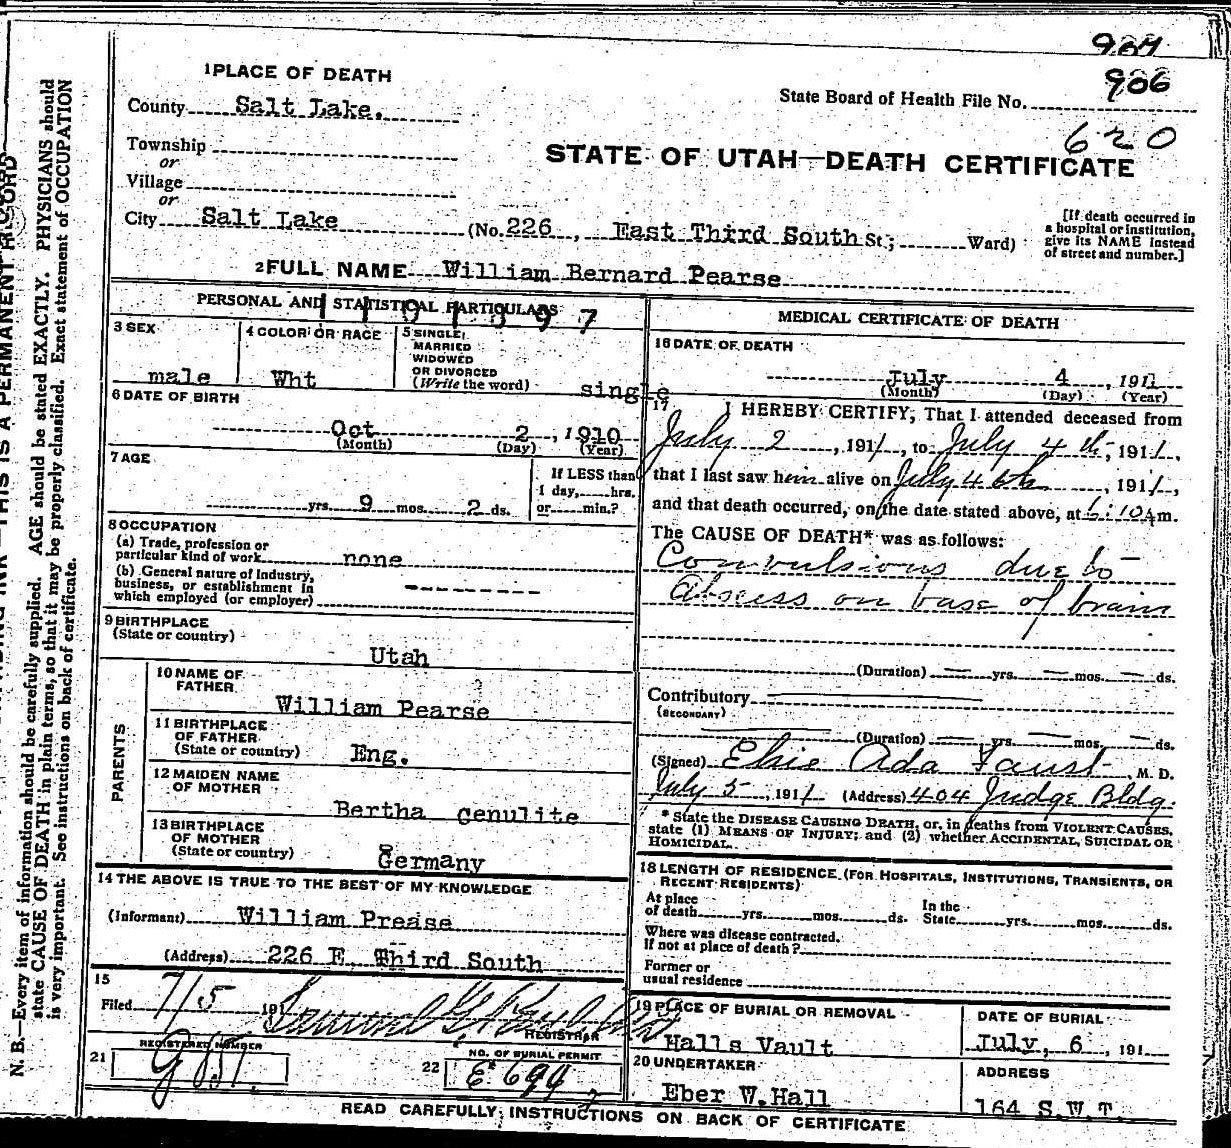 904
1 PLACE OF DEATH
906
County Salt Lake.
State Board of Health File No.
620
Township
or
STATE OF UTAH—DEATH CERTIFICATE
Village
or
City Salt Lake (No. 226, East Third South St; Ward)
[If death occurred in
a hospital or institution,
give its NAME instead
of street and number.]
2 FULL NAME William Bernard Pearse
PERSONAL AND STATISTICAL PARTICULARS
3 SEX
male
4 COLOR OR RACE
Wht
5 SINGLE,
MARRIED
WIDOWED
OR DIVORCED
(Write the word) single
6 DATE OF BIRTH
Oct 2, 1910
(Month) (Day) (Year)
7 AGE
yrs. 9 mos. 2 ds.
If LESS than
1 day, hrs.
or min.?
8 OCCUPATION
(a) Trade, profession or
particular kind of work none
(b) General nature of Industry,
business, or establishment in
which employed (or employer)
9 BIRTHPLACE
(State or country)
Utah
PARENTS
10 NAME OF
FATHER
William Pearse
11 BIRTHPLACE
OF FATHER
(State or country) Eng.
12 MAIDEN NAME
OF MOTHER
Bertha Genulite
13 BIRTHPLACE
OF MOTHER
(State or country) Germany
14 THE ABOVE IS TRUE TO THE BEST OF MY KNOWLEDGE
(Informant) William Prease
(Address) 226 E. Third South
15
Filed 7/5 191
REGISTRAR
REGISTERED NUMBER
21
NO. OF BURIAL PERMIT
22 E 694
MEDICAL CERTIFICATE OF DEATH
16 DATE OF DEATH
July 4, 1911
(Month) (Day) (Year)
17 I HEREBY CERTIFY, That I attended deceased from
July 2, 1911, to July 4th, 1911,
that I last saw him alive on July 4th, 1911,
and that death occurred, on the date stated above, at 6:10 A m.
The CAUSE OF DEATH* was as follows:
Convulsions due to
Abscess on base of brain
(Duration) yrs. mos. ds.
Contributory
(SECONDARY)
(Duration) yrs. mos. ds.
(Signed) Elsie Ada Faust, M. D.
July 5, 1911 (Address) 404 Judge Bldg.
* State the DISEASE CAUSING DEATH, or, in deaths from VIOLENT CAUSES,
state (1) MEANS OF INJURY; and (2) whether ACCIDENTAL, SUICIDAL OR
HOMICIDAL.
18 LENGTH OF RESIDENCE (FOR HOSPITALS, INSTITUTIONS, TRANSIENTS, OR
RECENT RESIDENTS)
At place
of death yrs. mos. ds.
In the
State yrs. mos. ds.
Where was disease contracted,
if not at place of death?
Former or
usual residence
19 PLACE OF BURIAL OR REMOVAL
Halls Vault
DATE OF BURIAL
July, 6, 191
20 UNDERTAKER
Eber W. Hall
ADDRESS
164 S.W.T.
READ CAREFULLY INSTRUCTIONS ON BACK OF CERTIFICATE
N. B.—Every item of information should be carefully supplied. AGE should be stated EXACTLY. PHYSICIANS should
state CAUSE OF DEATH in plain terms, so that it may be properly classified. Exact statement of OCCUPATION
is very important. See instructions on back of certificate.
INK—THIS IS A PERMANENT RECORD